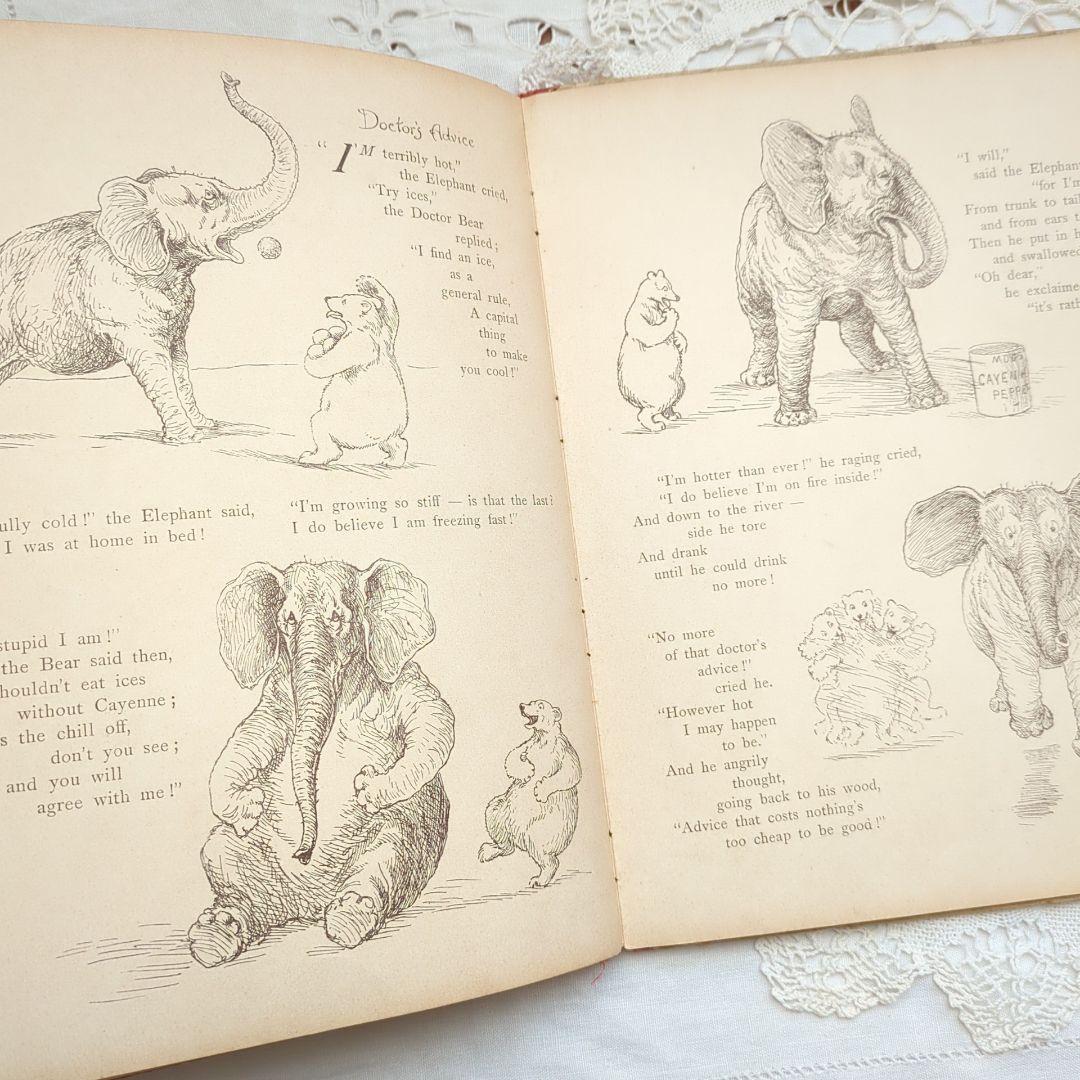 Doctor's Advice
"I'M terribly hot,"
the Elephant cried,
"Try ices,"
the Doctor Bear
replied;
"I find an ice,
as a
general rule,
A capital
thing
to make
you cool!"
cold!" the Elephant said,
I was at home in bed!
"I'm growing so stiff — is that the last?
I do believe I am freezing fast!"
stupid I am!"
the Bear said then,
eat ices
without Cayenne;
the chill off,
don't you see;
and you will
agree with me!"
"I will,"
said the Elephant
"for I'm
From trunk to tail
and from ears
Then he put in
and swallowed
"Oh dear,"
he exclaimed
"it's
CAYENNE
PEPPER
"I'm hotter than ever!" he raging cried,
"I do believe I'm on fire inside!"
And down to the river—
side he tore
And drank
until he could drink
no more!
"No more
of that doctor's
advice!"
cried he.
"However hot
I may happen
to be."
And he angrily
thought,
going back to his wood,
"Advice that costs nothing's
too cheap to be good!"